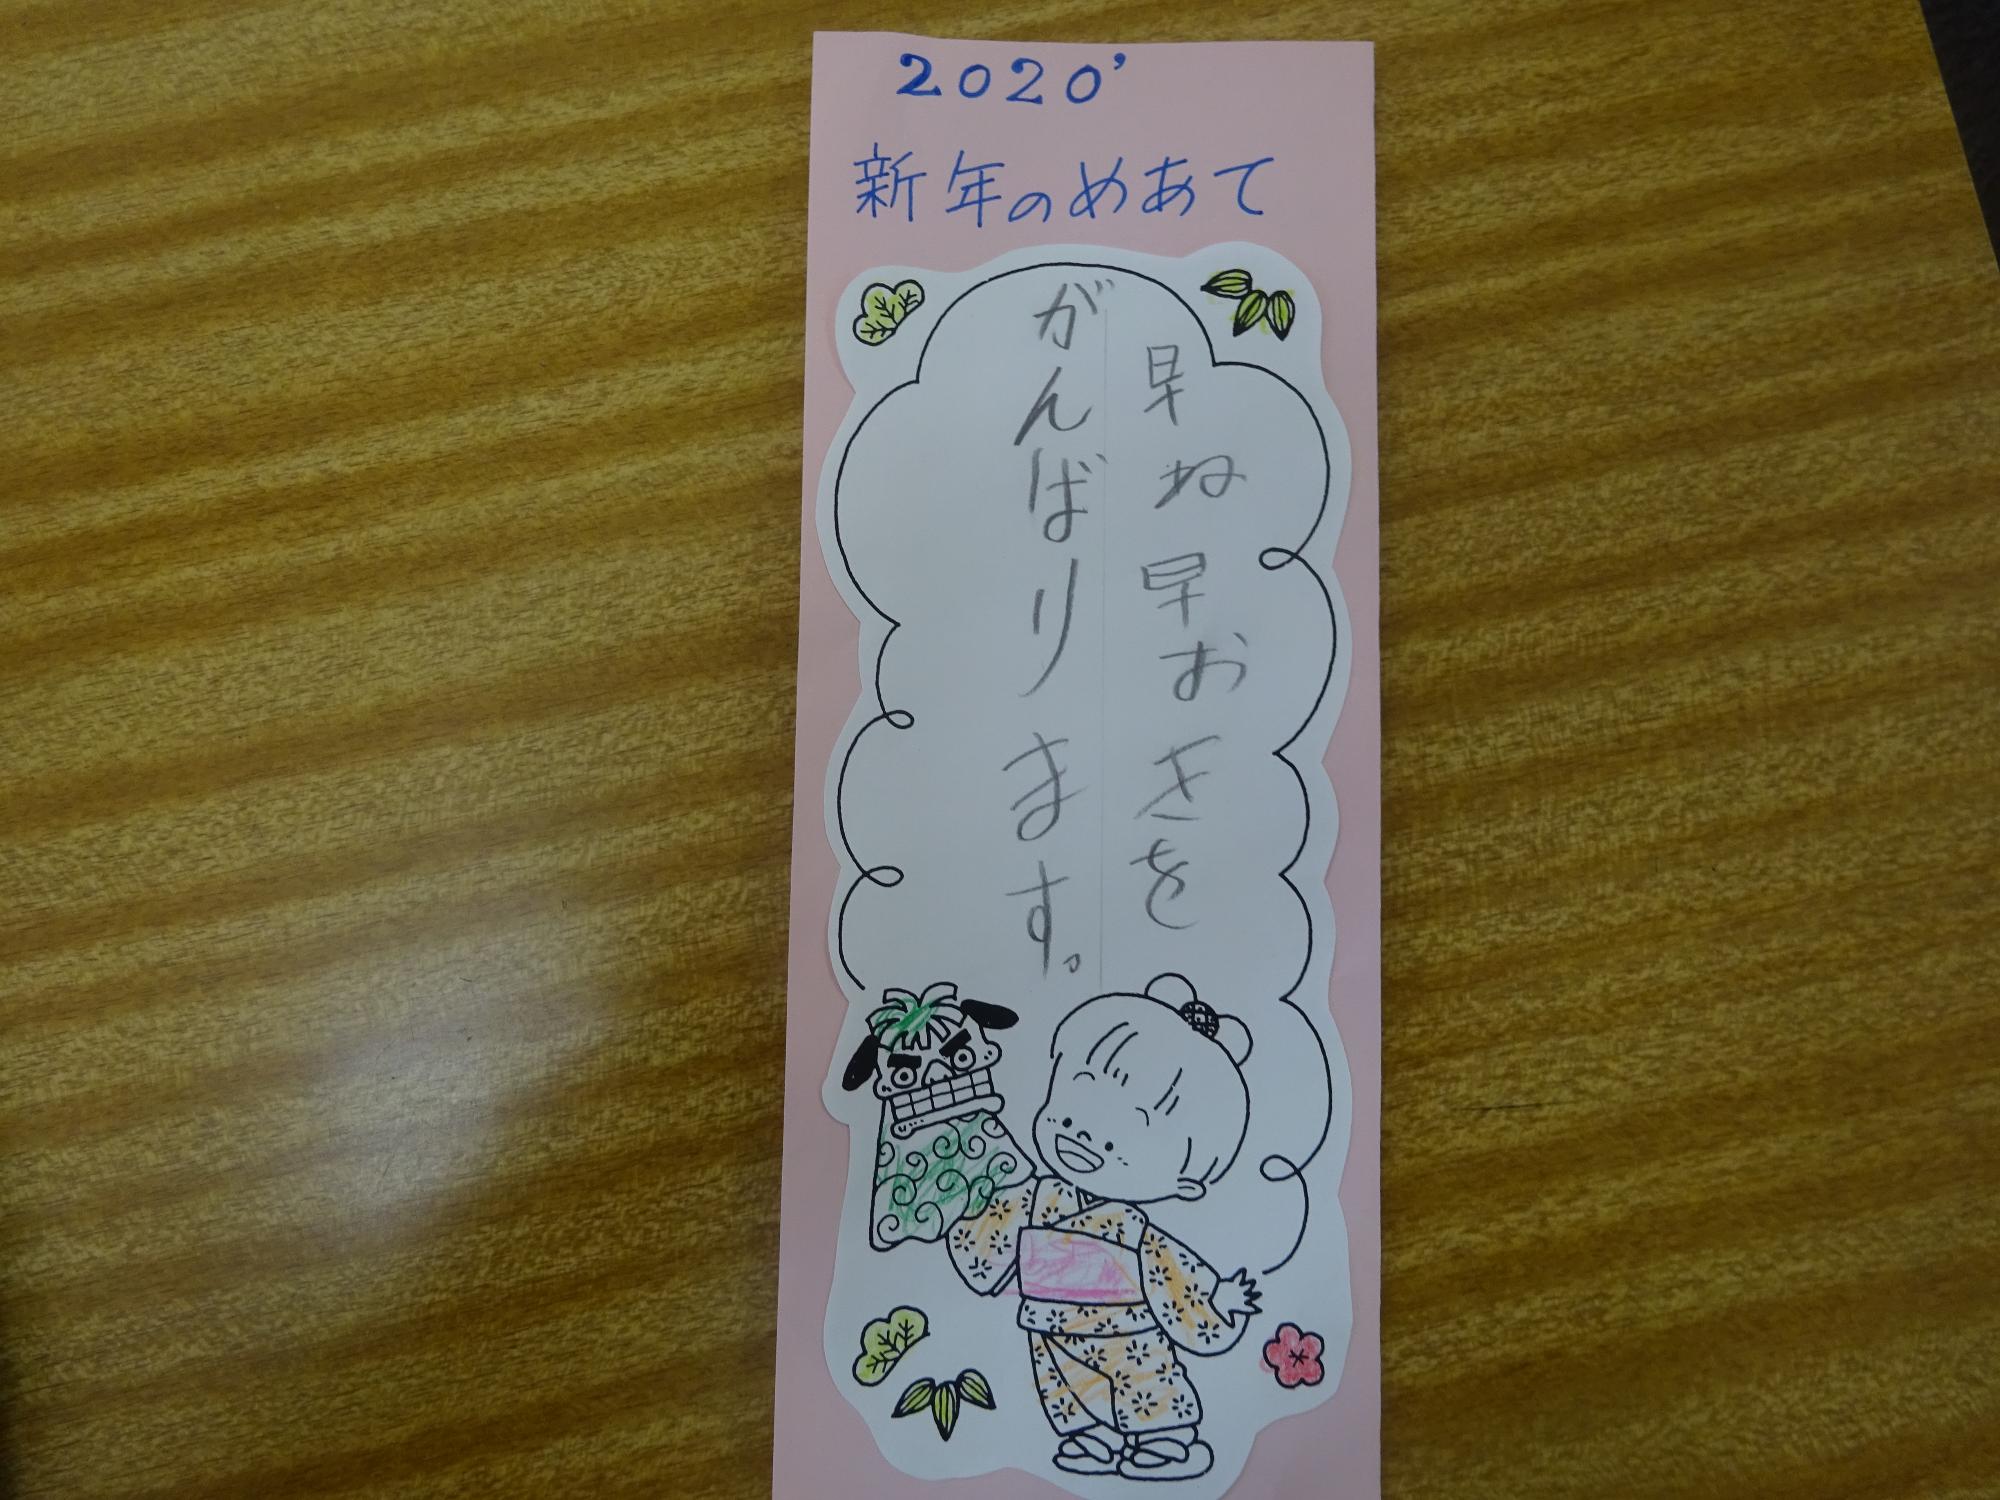 2020'
新年のめあて
早ね早おきを
がんばります。